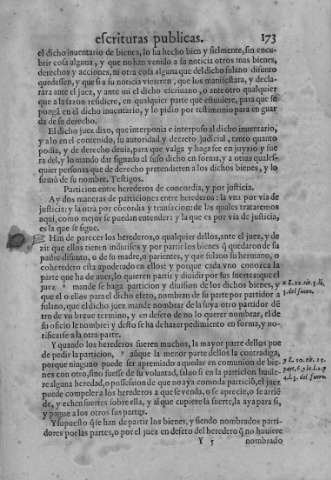 escrituras publicas. 173
el dicho inuentario de bienes, lo ha hecho bien y fielmente, sin encu-
brir cosa alguna, y que no han venido a su noticia otros mas bienes,
derechos y acciones, ni otra cosa alguna que del dicho fulano difunto
quedassen, y que si a su noticia vinieren, que los manifestara, y decla-
rara ante el juez, y ante mi el dicho escriuano, o ante otro qualquier
que a la sazon residiere, en qualquier parte que estuuiere, para que se
pongã en el dicho inuentario, y lo pidio por testimonio para en guar
da de su derecho.
El dicho juez dixo, que interponia e interpuso al dicho inuentario,
y a lo en el contenido, su autoridad y decreto judicial, tanto quanto
podia, y de derecho deuia, para que valga y haga fee en juyzio y fue
ra del, y lo mando dar signado al suso dicho en forma, y a otras quales-
quier personas que de derecho pretendieren a los dichos bienes, y lo
firmò de su nombre. Testigos.
Particion entre herederos de concordia, y por justicia.
Ay dos maneras de particiones entre herederos: la vna por via de
justicia: y la otra por cõcordia y transacion: de las quales trataremos
aqui, como mejor se puedan entender: y la que es por via de justicia,
es la que se sigue.
Han de parecer los herederos, o qualquier dellos, ante el juez, y de
zir que ellos tienen indiuisos y por partir los bienes q̃ quedaron de su
padre difunto, o de su madre, o parientes, y que fulano su hermano, o
coheredero està apoderado en ellos: y porque cada vno conozca la
parte que ha de auer, lo quieren partir y diuidir por sus suertes: que el
juez mande se haga particion y diuision de los dichos bienes, y
que el o ellos para el dicho efeto, nombran de su parte por partidor a
fulano, que el dicho juez mande nombrar de la suya otro partidor dẽ
tro de vn breue termino, y en defeto de no lo querer nombrar, el de
su oficio le nombre: y desto se ha de hazer pedimiento en forma, y no-
tificarse a la otra parte.
Y quando los herederos fueren muchos, la mayor parte dellos pue
de pedir la particion, aũque la menor parte dellos la contradiga,
porque ninguno puede ser apremiado a quedar en comunion de bie-
nes con otro, sino fuesse de su voluntad, saluo si en la particion huuies-
se alguna heredad, o possession de que no aya comoda particiõ, el juez
puede compeler a los herederos a que se venda, o se aprecie, o se arriẽ
de, y echen suertes sobre ella, y al que cupiere la suerte, la aya para si,
y pague a los otros sus partes.
Y supuesto q̃ se han de partir los bienes, y siendo nombrados parti-
dores por las partes, o por el juez en defeto del heredero q̃ no huuiere
Y 5 nombrado